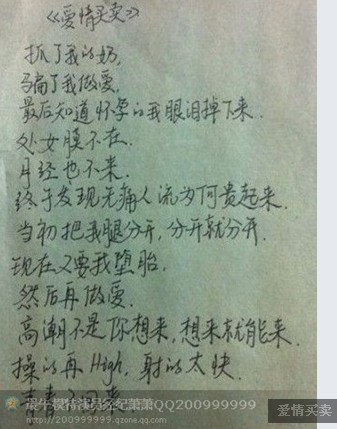 《爱情买卖》
抓了我的奶，
骗了我做爱，
最后知道怀孕的我眼泪掉下来.
处女膜不在.
月经也不来.
终于发现无痛人流为何贵起来.
当初把我腿分开，分开就分开.
现在又要我堕胎.
然后再做爱.
高潮不是你想来，想来就能来.
操的再High，射的太快.
QQ200999999
200999999.qzone.qq.com
爱情买卖